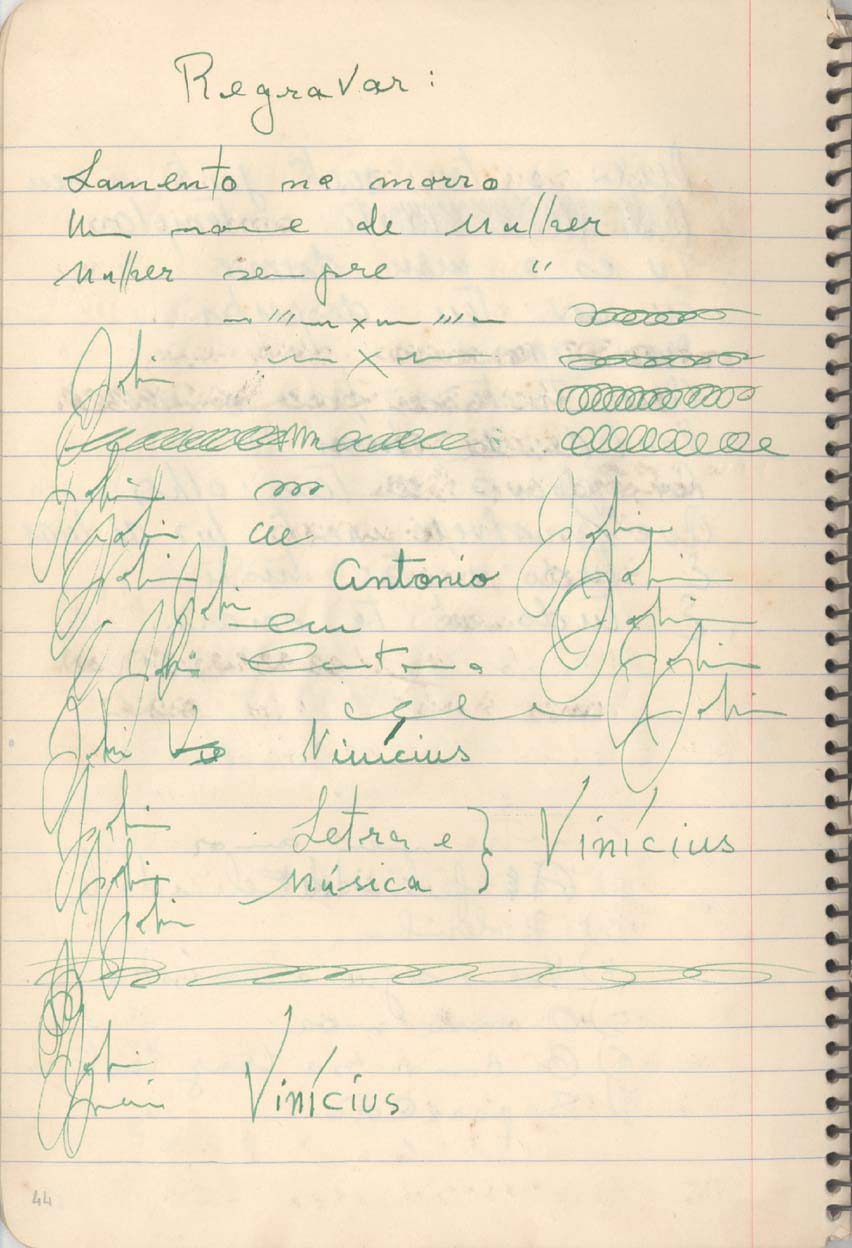 Regravar:
Lamento no morro
Um nome de Mulher
Mulher sempre "
Jobim
Jobim
Jobim
Jobim
Jobim
Antonio
Jobim
Jobim
em
Jobim
Jobim
Jobim
Jobim
Vinícius
Jobim
Letra e
Música } Vinícius
Jobim
Jobim
Jobim
Vinícius
44